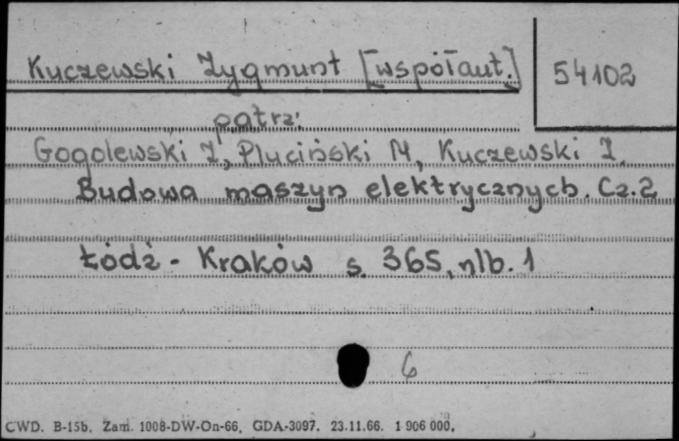 Kuczewski Zygmunt [współaut.]
54102
patrz:
Gogolewski Z, Pluciński M, Kuczewski Z.
Budowa maszyn elektrycznych. Cz. 2
Łódź - Kraków s. 365, nlb. 1
6
CWD. B-15b. Zam. 1008-DW-On-66. GDA-3097. 23.11.66. 1 906 000.